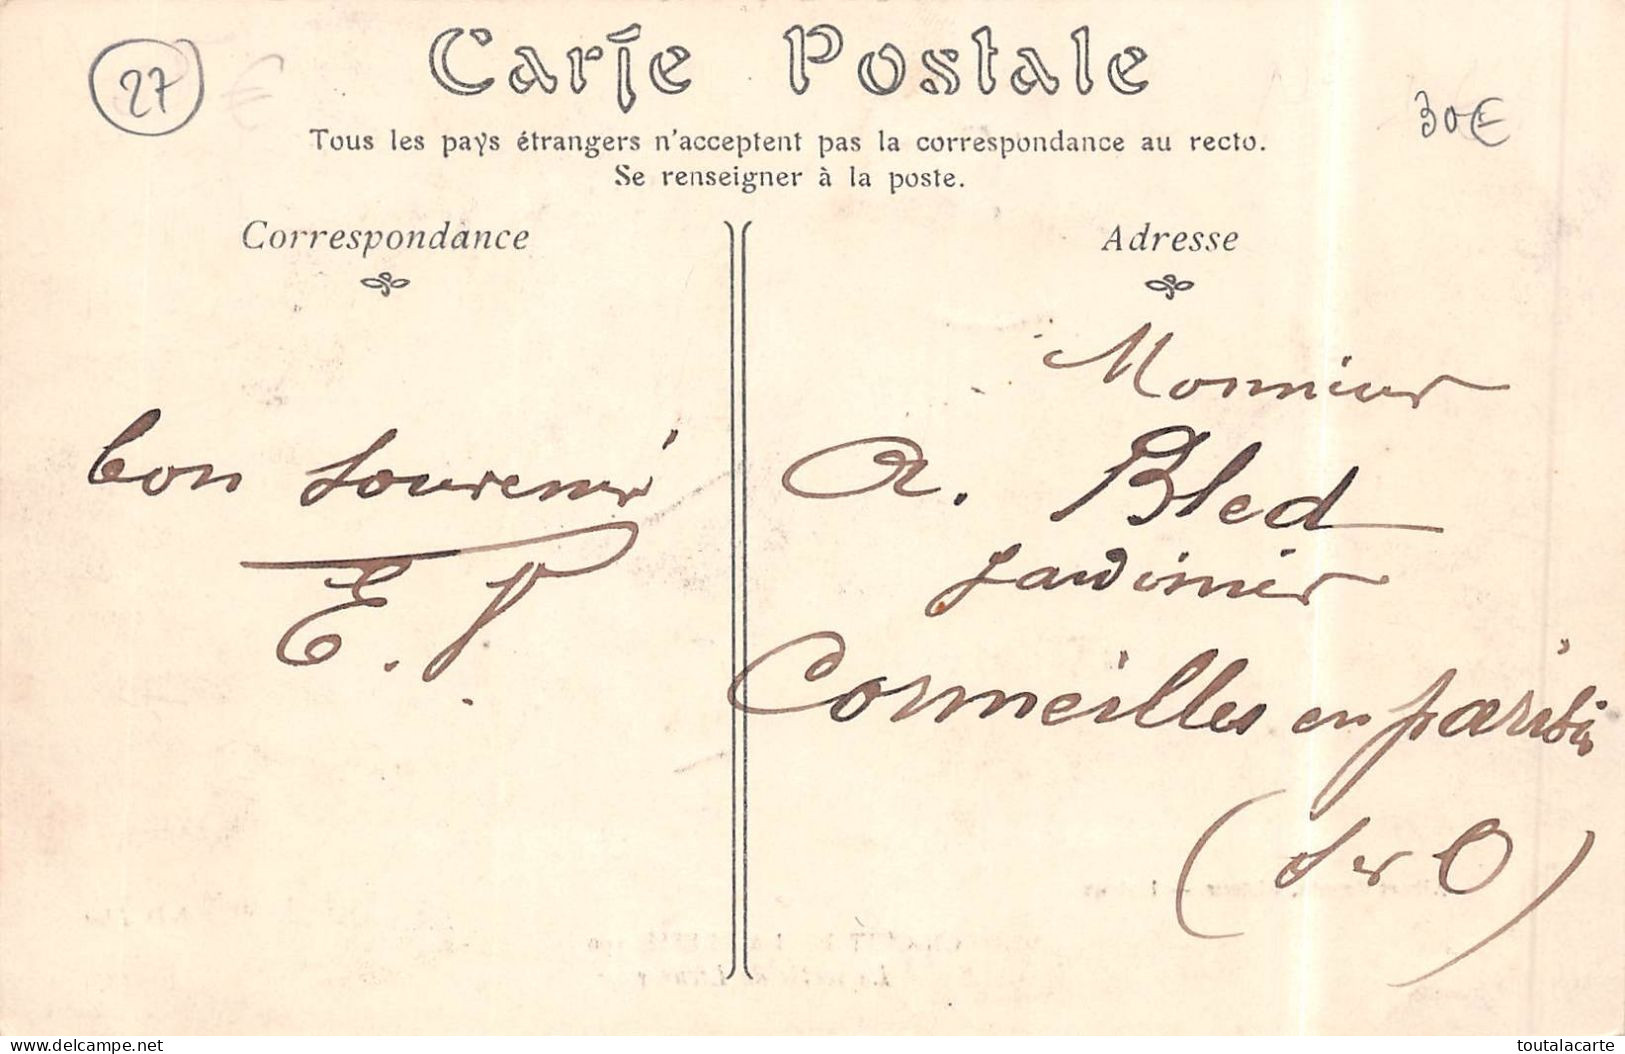 27
Carte Postale
30€
Tous les pays étrangers n'acceptent pas la correspondance au recto.
Se renseigner à la poste.
Correspondance
Adresse
Monsieur
A. Bled
Jardinier
Cormeilles en parisis
(S et O)
bon souvenir
E. P.
www.delcampe.net
toutalacarte